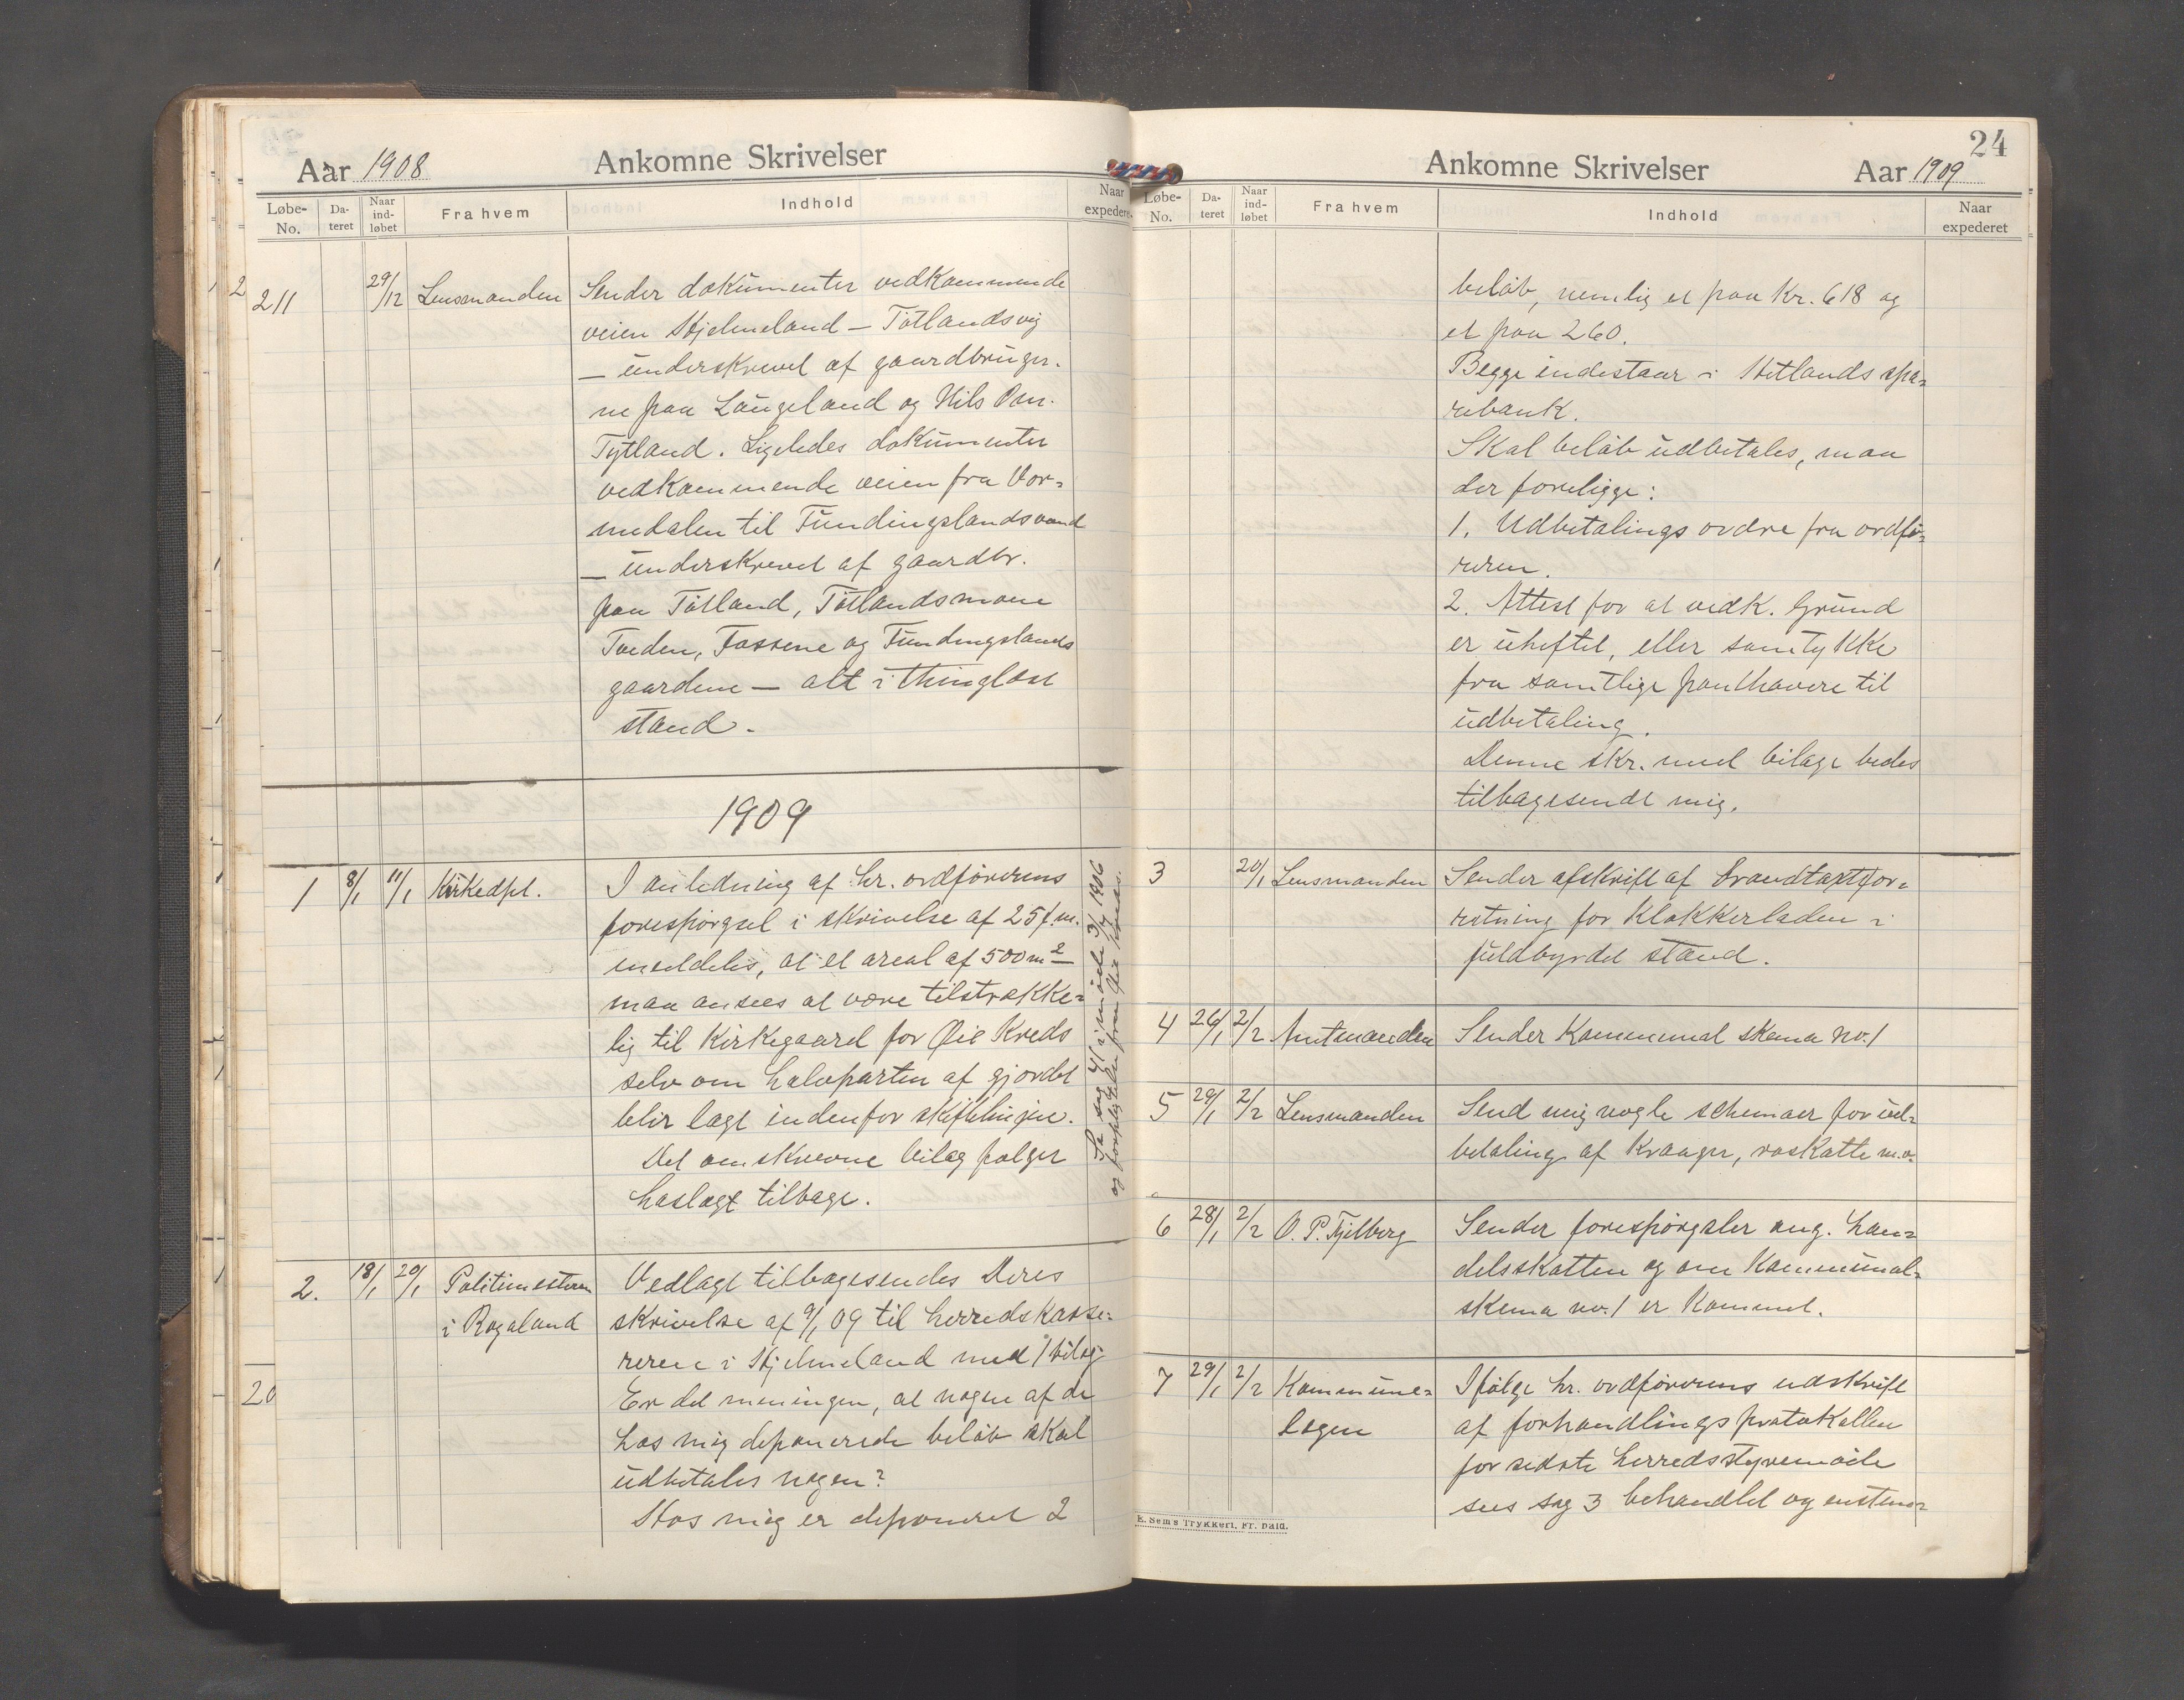 Aar 1908
Ankomne Skrivelser
Løbe-
No.
Da-
teret
Naar
ind-
løbet
Fra hvem
Indhold
Naar
expederet
211
29/12
Lensmanden
Sender dokumenter vedkommende
veien Hjelmeland – Tøtlandsvig
– underskrevet af gaardbruger-
ne paa Laugeland og Nils Dan.
Tytland. Ligeledes dokumenter
vedkommende veien fra Vor-
medalen til Fundingslandsvand
– underskrevet af gaardbr.
paa Tøtland, Tøtlandsmoen
Tveden, Fossene og Fundingslands
gaardene – alt i thinglæst
stand.
1909
1
8/1
11/1
Kirkedpt.
I anledning af hr. ordførerens
forespørgsel i skrivelse af 25 f.m.
meddeles, at et areal af 500 m2
maa ansees at være tilstrække-
lig til Kirkegaard for Øie Kreds
selv om halvparten af gjordet
blir lagt indenfor skiftelinjen.
Det omskrevne bilag følger
hoslagt tilbage.
Se sag 41 i møde 3/7 1906
og forpligtelse fra Øie Kreds.
2.
18/1
20/1
Politimesteren
i Rogaland
Vedlagt tilbagesendes Deres
skrivelse af 9/1 09 til herredskasse-
reren i Hjelmeland med 1 bilag
Er det meningen, at nogen af de
hos mig deponerede beløb skal
udbetales nogen?
Hos mig er deponeret 2
24
Ankomne Skrivelser
Aar 1909
Løbe-
No.
Da-
teret
Naar
ind-
løbet
Fra hvem
Indhold
Naar
expederet
beløb, nemlig et paa Kr. 618 og
et paa 260.
Begge indestaar i Hetlands spa-
rebank.
Skal beløb udbetales, maa
der foreligge:
1. Udbetalingsordre fra ordfø-
reren.
2. Attest for at vedk. Grund
er uheftet, eller samtykke
fra samtlige panthavere til
udbetaling.
Denne skr. med bilage bedes
tilbagesendt mig.
3
20/1
Lensmanden
Sender afskrift af brandtaxtfor-
retning for Klokkerladen i
fuldbyrdet stand.
4
26/1
2/2
Amtmanden
Sender Kommunal skema no. 1
5
29/1
2/2
Lensmanden
Send mig nogle schemaer for ud-
betaling af Kraager, roskatte m.v.
6
28/1
2/2
O. P. Fjelberg
Sender forespørgsler ang. han-
delsskatten og om Kommunal-
skema no. 1 er Kommet.
7
29/1
2/2
Kommune-
lægen
Ifølge hr. ordførerens udskrift
af forhandlingsprotokollen
for sidste herredsstyremøde
sees sag 3 behandlet og enstem-
E. Sem's Trykkeri, Fr. hald.